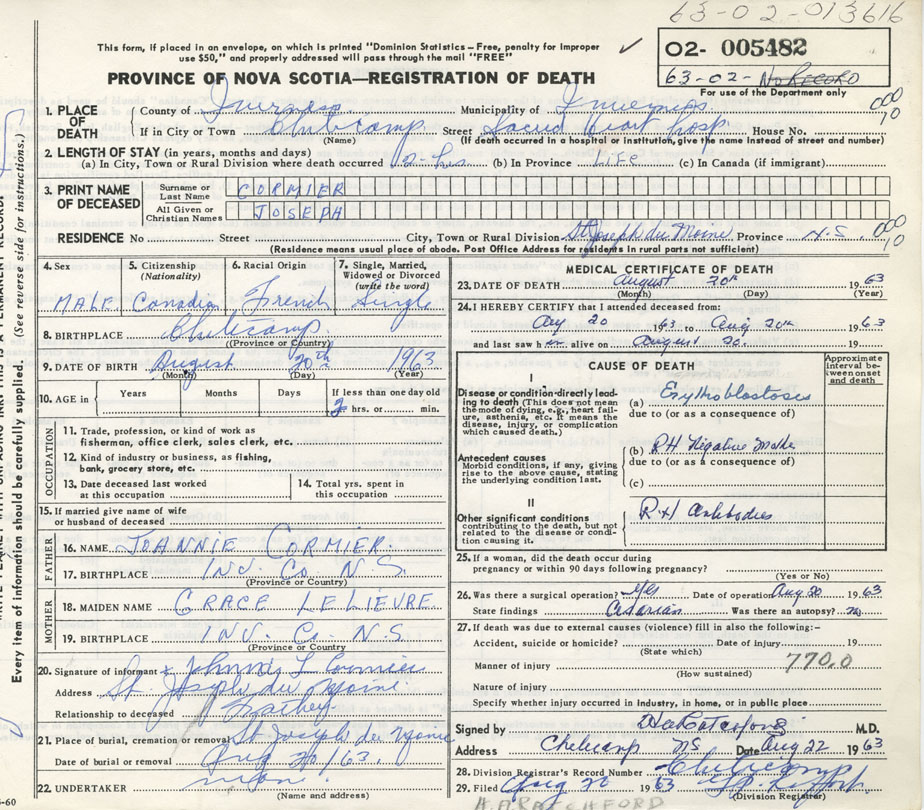 63-02-013616
This form, if placed in an envelope, on which is printed "Dominion Statistics – Free, penalty for improper
use $50," and properly addressed will pass through the mail "FREE"
02- 005482
PROVINCE OF NOVA SCOTIA—REGISTRATION OF DEATH
63-02- No RECORD
For use of the Department only
1. PLACE OF DEATH
County of Inverness Municipality of Inverness
000
10
If in City or Town Cheticamp Street Sacred Heart Hosp House No.
(Name) (If death occurred in a hospital or institution, give the name instead of street and number)
2. LENGTH OF STAY (in years, months and days)
(a) In City, Town or Rural Division where death occurred 2 hrs (b) In Province LIFE (c) In Canada (if immigrant)
3. PRINT NAME OF DECEASED
Surname or Last Name CORMIER
All Given or Christian Names JOSEPH
RESIDENCE No Street City, Town or Rural Division St Joseph du Moine Province N.S.
000
10
(Residence means usual place of abode. Post Office Address for residents in rural parts not sufficient)
4. Sex 5. Citizenship (Nationality) 6. Racial Origin 7. Single, Married, Widowed or Divorced (write the word)
MALE Canadian French Single
8. BIRTHPLACE Cheticamp
(Province or Country)
9. DATE OF BIRTH August 20th 1963
(Month) (Day) (Year)
10. AGE in Years Months Days If less than one day old
2 hrs. or min.
OCCUPATION
11. Trade, profession, or kind of work as
fisherman, office clerk, sales clerk, etc.
12. Kind of industry or business, as fishing,
bank, grocery store, etc.
13. Date deceased last worked
at this occupation
14. Total yrs. spent in
this occupation
15. If married give name of wife
or husband of deceased
FATHER
16. NAME JOHNNIE CORMIER
17. BIRTHPLACE INV. Co. N.S.
(Province or Country)
MOTHER
18. MAIDEN NAME GRACE LELIEVRE
19. BIRTHPLACE INV. Co. N.S.
(Province or Country
20. Signature of informant Johnnie L Cormier
Address St. Joseph du Moine
Relationship to deceased Father
21. Place of burial, cremation or removal St Joseph du Moine
Date of burial or removal Aug 20/63.
22. UNDERTAKER
(Name and address)
MEDICAL CERTIFICATE OF DEATH
23. DATE OF DEATH August 20th 1963
(Month) (Day) (Year)
24. I HEREBY CERTIFY that I attended deceased from:
Aug 20 1963 to Aug 20th 1963
and last saw him alive on August 20.
CAUSE OF DEATH
Approximate
Interval be-
tween onset
and death
I
Disease or condition directly lead-
ing to death (This does not mean
the mode of dying, e.g., heart fail-
ure, asthenia, etc. It means the
disease, injury, or complication
which caused death.)
(a) Erythoblastosis
due to (or as a consequence of)
Antecedent causes
Morbid conditions, if any, giving
rise to the above cause, stating
the underlying condition last.
(b) RH Negative Mother
due to (or as a consequence of)
(c)
II
Other significant conditions
contributing to the death, but not
related to the disease or condi-
tion causing it.
RH Antibodies
25. If a woman, did the death occur during
pregnancy or within 90 days following pregnancy?
(Yes or No)
26. Was there a surgical operation? yes Date of operation Aug 20 1963
State findings Cesarian Was there an autopsy? no
27. If death was due to external causes (violence) fill in also the following:-
Accident, suicide or homicide? Date of injury 19
(State which)
Manner of injury 770.0
(How sustained)
Nature of injury
Specify whether injury occurred in Industry, in home, or in public place
Signed by M.D.
Address Cheticamp NS Date Aug 22 1963
28. Division Registrar's Record Number Cheticamp
29. Filed Aug 20 1963
(Division Registrar)
H.A. RATCHFORD
Every item of information should be carefully supplied. (See reverse side for instructions.)
-60